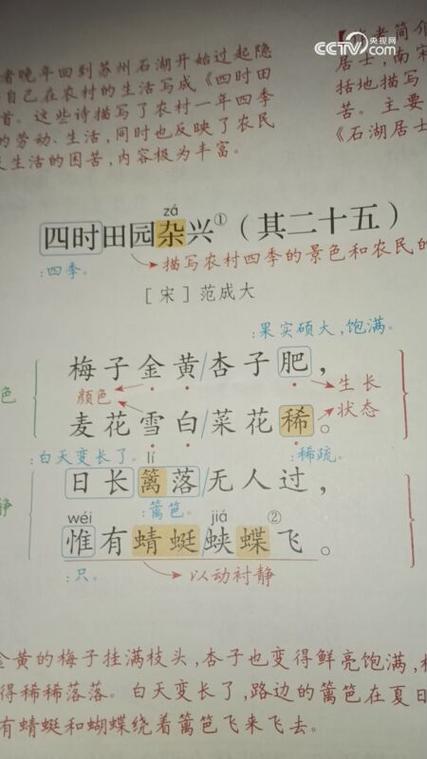 CCTV 央视网
.com
者晚年回到苏州石湖开始过起隐
自己在农村的生活写成《四时田
首。这些诗描写了农村一年四季
的劳动、生活,同时也反映了农民
生活的困苦,内容极为丰富。
居士,南宋
括地描写
苦。主要
《石湖居士
zá
四时田园杂兴①(其二十五)
:四季。
描写农村四季的景色和农民的
[宋]范成大
:果实硕大,饱满。
梅子金黄/杏子肥,
色
颜色
生长
状态
麦花雪白/菜花稀。
:白天变长了。
lí
:稀疏。
日长篱落/无人过,
静
:篱笆。
wéi jiá ②
惟有蜻蜓/蛱蝶飞。
:只。
以动衬静
金黄的梅子挂满枝头,杏子也变得鲜亮饱满,
得稀稀落落。白天变长了,路边的篱笆在夏日
有蜻蜓和蝴蝶绕着篱笆飞来飞去。